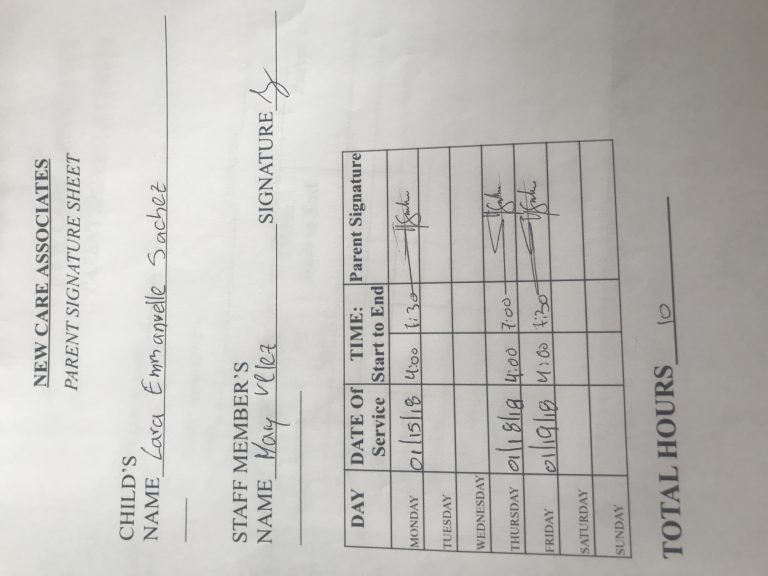 NEW CARE ASSOCIATES
PARENT SIGNATURE SHEET
CHILD'S
NAME Lara Emmanuelle Sachez
STAFF MEMBER'S
NAME Mary Velez SIGNATURE
DAY DATE Of Service TIME: Start to End Parent Signature
MONDAY 01/15/18 4:00 7:30
TUESDAY
WEDNESDAY
THURSDAY 01/18/18 4:00 7:00
FRIDAY 01/19/18 4:00 7:30
SATURDAY
SUNDAY
TOTAL HOURS 10